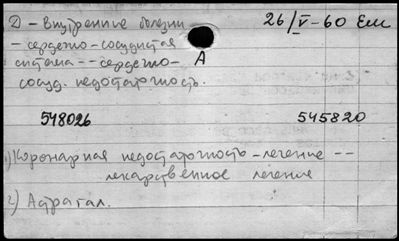 Д - Внутренние болезни
26/V-60 Ем
- сердечно-сосудистая
система -- сердечно-
А
сосуд. недостаточность.
548026
545820
1) Коронарная недостаточность - лечение --
лекарственное лечение
2) Астрагал.